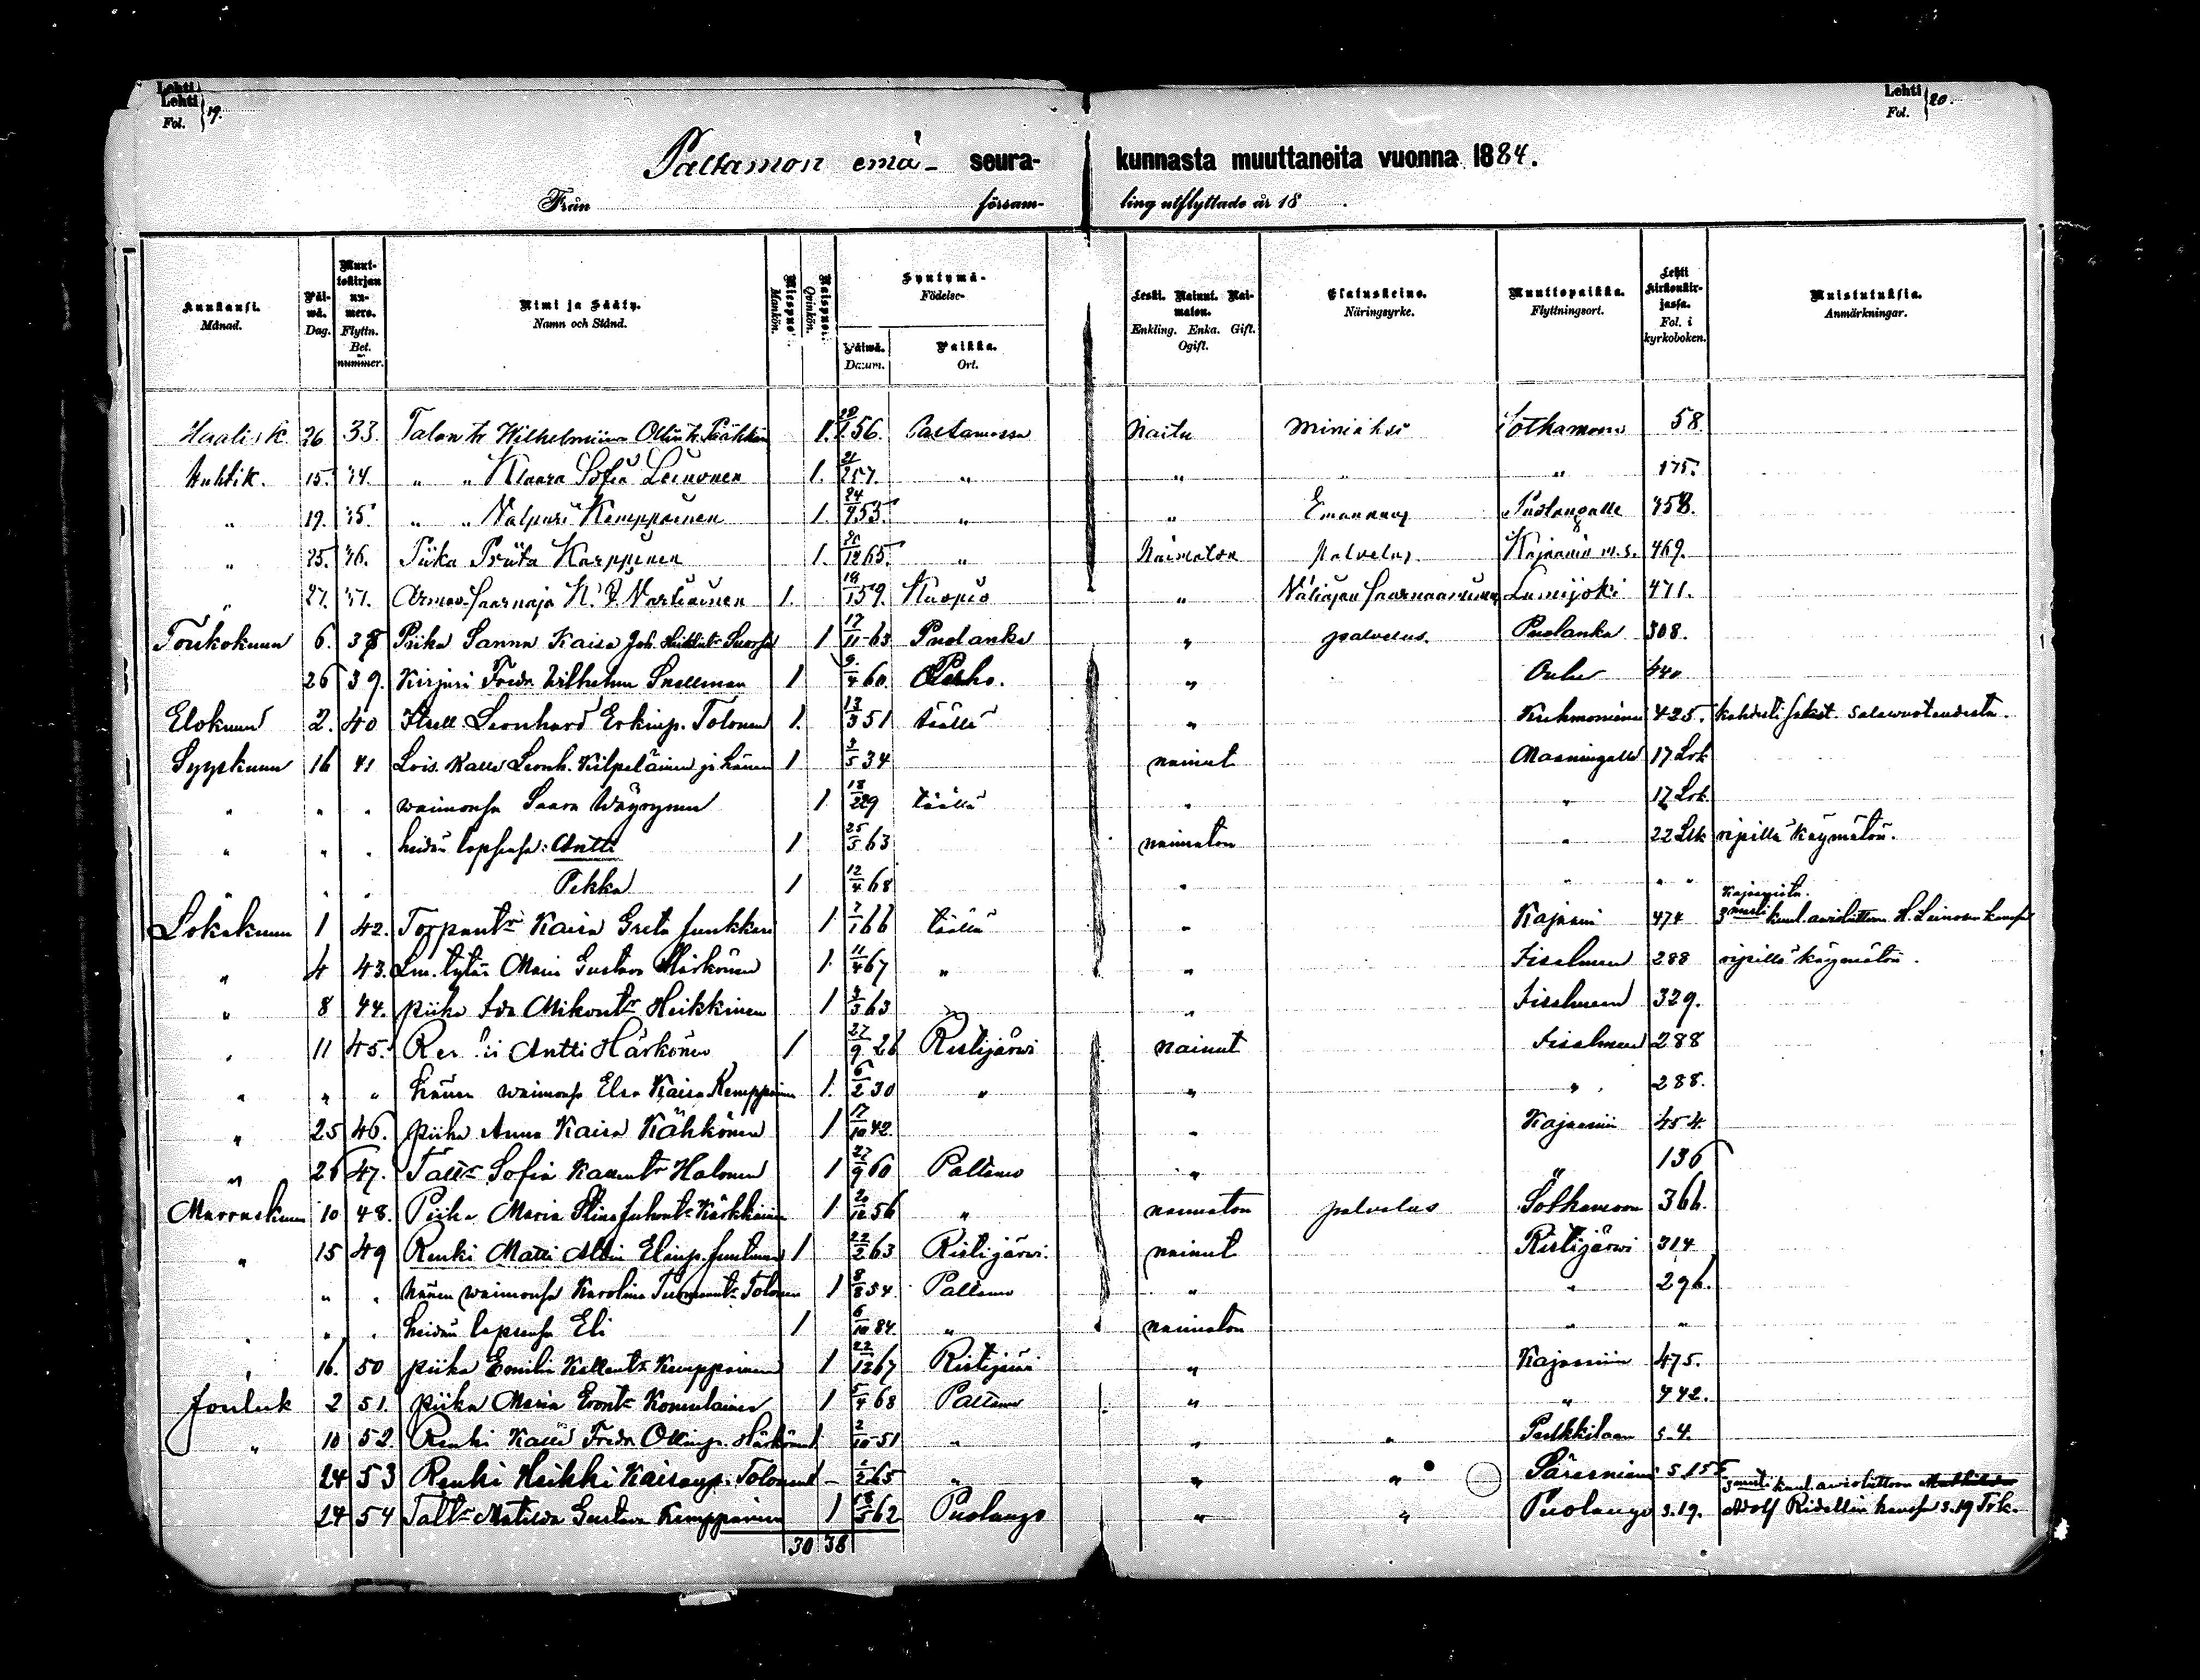 Lehti
Lehti
Fol. 19.
Lehti
Fol. 20.
Paltamon emä- seura- kunnasta muuttaneita vuonna 1884.
Från försam- ling utflyttade år 18 .
Kuukausi. Månad. Päiwä. Dag. Muuttokirjan numero. Flyttn. Bet. nummer. Nimi ja Sääty. Namn och Stånd. Miespuoli. Mankön. Naispuoli. Qvinkön. Syntymä- Födelse- Päiwä. Datum. Paikka. Ort. Leski. Nainut. Naimaton. Enkling. Enka. Gift. Ogift. Elatuskeino. Näringsyrke. Muuttopaikka. Flyttningsort. Lehti kirkonkirjassa. Fol. i kyrkoboken. Muistutuksia. Anmärkningar.
Maalisk. 26 33. Talon tr Wilhelmiina Ollin tr. 1. 56. Paltamossa Naitu Miniäksi Sotkamoon 58.
Huhtik. 15. 34. " " Klaara Sofia Leinonen 1. 21/2 57. " " " " 175.
" 19. 35. " " Valpuri Kemppainen 1. 24/4 53. " " Emännäxi Puolangalle 358.
" 25. 36. Piika Priita Karppinen 1. 20/12 65. " Naimaton Palvelus. Kajaanin m.s. 469.
" 27. 37. Armov. Saarnaja K. J. Vartiainen 1. 19/1 59. Kuopio " Väliajan Saarnaamaan Lumijoki 471.
Toukokuun 6. 38 Piika Sanna Kaisa Joh. Heikkintr 1 17/11 63 Puolanka " palvelus. Puolanka 308.
26 39. Kirjuri Fredr Wilhelm Snellman 1 9/4 60. " Oulu 440
Elokuun 2. 40 Itsell. Leonhard Erkinp. Tolonen 1. 13/3 51 täällä " Kuhmoniemi 425. salawuoteudesta.
Syyskuun 16 41 Lois. Kalle Leonh. Kilpeläinen ja hänen 1 3/5 34 nainut Maaningalle 17 Lrk
" " " waimonsa Saara Wäyrynen 1 18/2 29 täällä " " 17 Lrk
" " " heidän lapsensa: Antti 1 25/5 63 naimaton " 22 Llk ripillä käymätön.
" " Pekka 1 12/4 68 " " " "
Lokakuun 1 42. Torpantr Kaisa Greta Junkkari 1 7/1 66 täällä " Kajaani 474 Kajaanista. 3 kuul. awioliittoon H. Leinosen kanssa
" 4 43. Lm. tytär Maria Gustava Härkönen 1. 11/4 67 " " Iisalmeen 288 ripillä käymätön.
" 8 44. piika Ida Mikontr Heikkinen 1 4/3 63 " " Iisalmeen 329.
" 11 45. Antti Härkönen 1 27/9 26 Ristijärwi nainut Iisalmeen 288
" " " hänen waimonsa Elsa Kaisa Kemppainen 1. 6/2 30 " " " 288.
" 25 46. piika Anna Kaisa Kähkönen 1 17/10 42. " Kajaaniin 454.
" 26 47. Taltr Sofia Kallentr Halonen 1 27/9 60 Paltamo " " 136
Marraskuun 10 48. Piika Maria Stina Juhontr Kärkkäinen 1 20/12 56 " naimaton palvelus Sotkamoon 366.
" 15 49 Renki Matti Albin Elinp. Juntunen 1 22/2 63 Ristijärwi. nainut Ristijärwi 314
" " hänen waimonsa Karolina Tuomaantr Tolonen 1 8/8 54 Paltamo " " 296.
" " " heidän lapsensa Eli 1 6/10 84. " naimaton " "
" 16. 50 piika Emilia Kallentr Kemppainen 1 22/12 67 Ristijärwi " Kajaaniin 475.
Jouluk 2 51. piika Maria Eerontr Komulainen 1 5/4 68 Paltamo " " 442.
" 10 52. Renki Kalle Fredr Ollinp. Härkönen 1. 2/10 51 " " " Pulkkilaan s. 4.
24 53 Renki Heikki Kaisanp. Tolonen 1 2/2 65 " " " Säresniemi s. 155 3 kuul. awioliittoon
24 54 Taltr Matilda Gustava Kemppainen 1 18/5 62 Puolango " " Puolango s. 19. Adolf Ridellin kanssa s. 19 Trk.
30 38